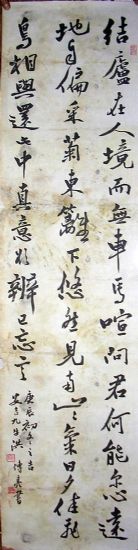 結廬在人境而無車馬喧問君何能尔心遠
地自偏采菊東籬下悠然見南山山氣日夕佳飛
鳥相與還此中真意欲辨已忘言
庚辰初春之吉